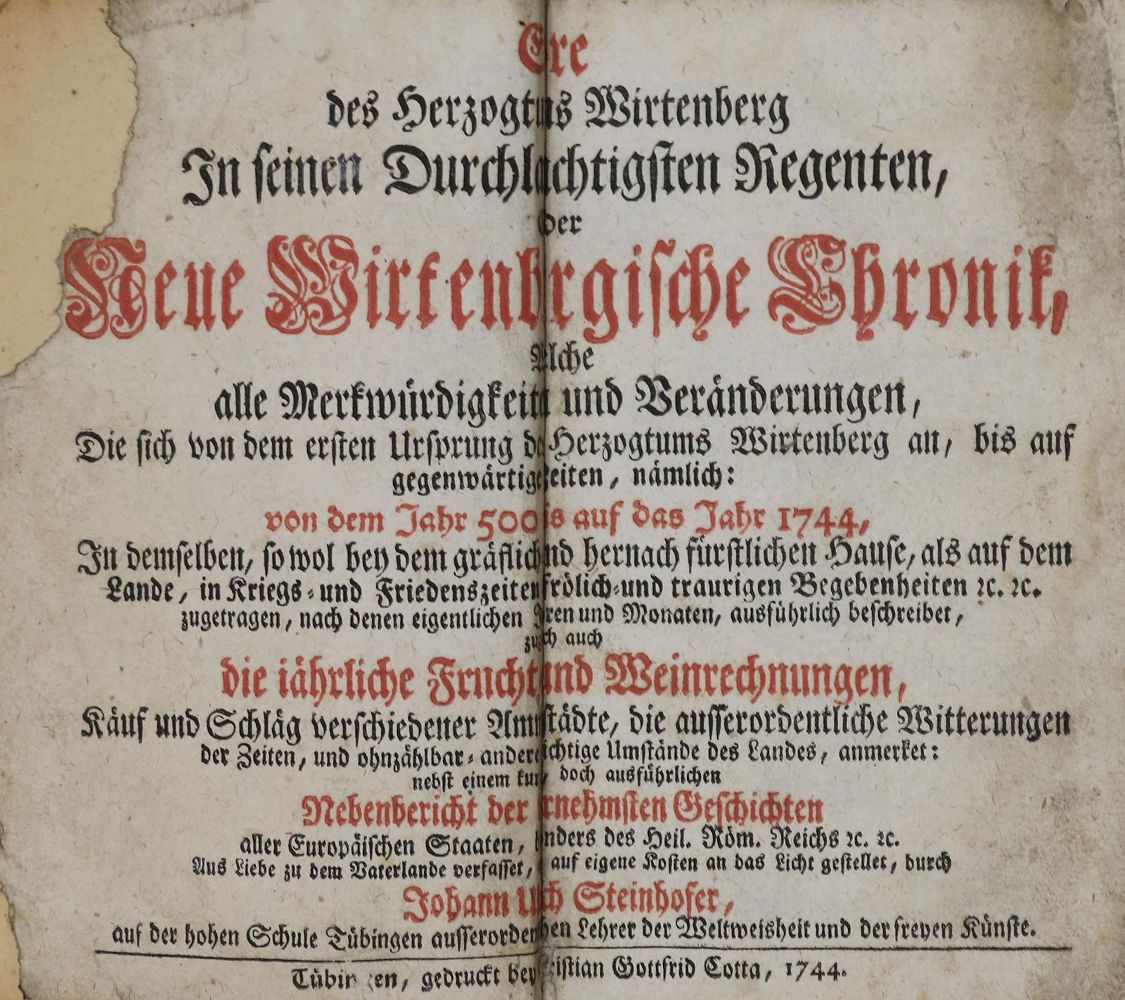 Ere
des Herzogtus Wirtenberg
In seinen Durchlachtigsten Regenten,
der
Neue Wirtenbrgische Chronik,
Wlche
alle Merkwürdigkeitn und Veränderungen,
Die sich von dem ersten Ursprung de Herzogtums Wirtenberg an, bis auf
gegenwärtigeZeiten, nämlich:
von dem Jahr 500 is auf das Jahr 1744,
In demselben, so wol bey dem gräflichnd hernach fürstlichen Hause, als auf dem
Lande, in Kriegs- und Friedenszeiten frölich- und traurigen Begebenheiten ꝛc. ꝛc.
zugetragen, nach denen eigentlichen Jren und Monaten, ausführlich beschreibet,
zuch auch
die jährliche Frucht und Weinrechnungen,
Käuf und Schläg verschiedener Amtstädte, die ausserordentliche Witterungen
der Zeiten, und ohnzählbar-anderichtige Umstände des Landes, anmerket:
nebst einem kur, doch ausführlichen
Nebenbericht der rnehmsten Geschichten
aller Europäischen Staaten, nders des Heil. Röm. Reichs ꝛc. ꝛc.
Aus Liebe zu dem Vaterlande verfasset, auf eigene Kosten an das Licht gestellet, durch
Johann Uch Steinhofer,
auf der hohen Schule Tübingen ausserordenhen Lehrer der Weltweisheit und der freyen Künste.
Tübingen, gedruckt bey istian Gottfrid Cotta, 1744.